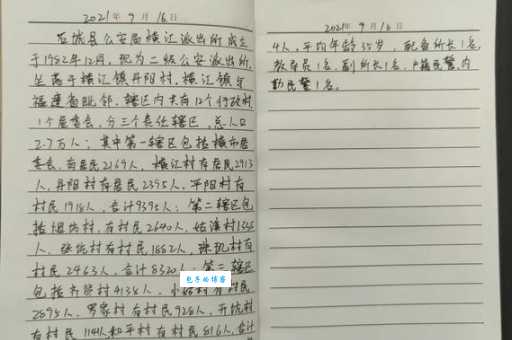 2021年9月16日
石城县公安局横江派出所成立
于1982年12月,现为二级公安派出所,
坐落于横江镇丹阳村。横江镇与
福建省毗邻,辖区内共有12个行政村,
1个居委会,分三个责任辖区,总人口
2.7万人;其中第一辖区包括横市居
委会,有居民2169人,横江村有居民2913
人,丹阳村有居民2395人,平阳村有
村民1918人,合计9395人;第二辖区包
括 村,有村民2640人, 村1335
人, 村有村民1882人,珠玑村有
村民2463人,合计8320人,第三辖区
包括 村4138人, 村有村民
2695人,罗家村有村民928人,开坑村
有村民1141人,和平村有村民816人,合计
包子的博客
2021年9月16日
4人,平均年龄35岁,配备所长1名,
教导员1名,副所长1名,户籍民警内
勤民警1名。